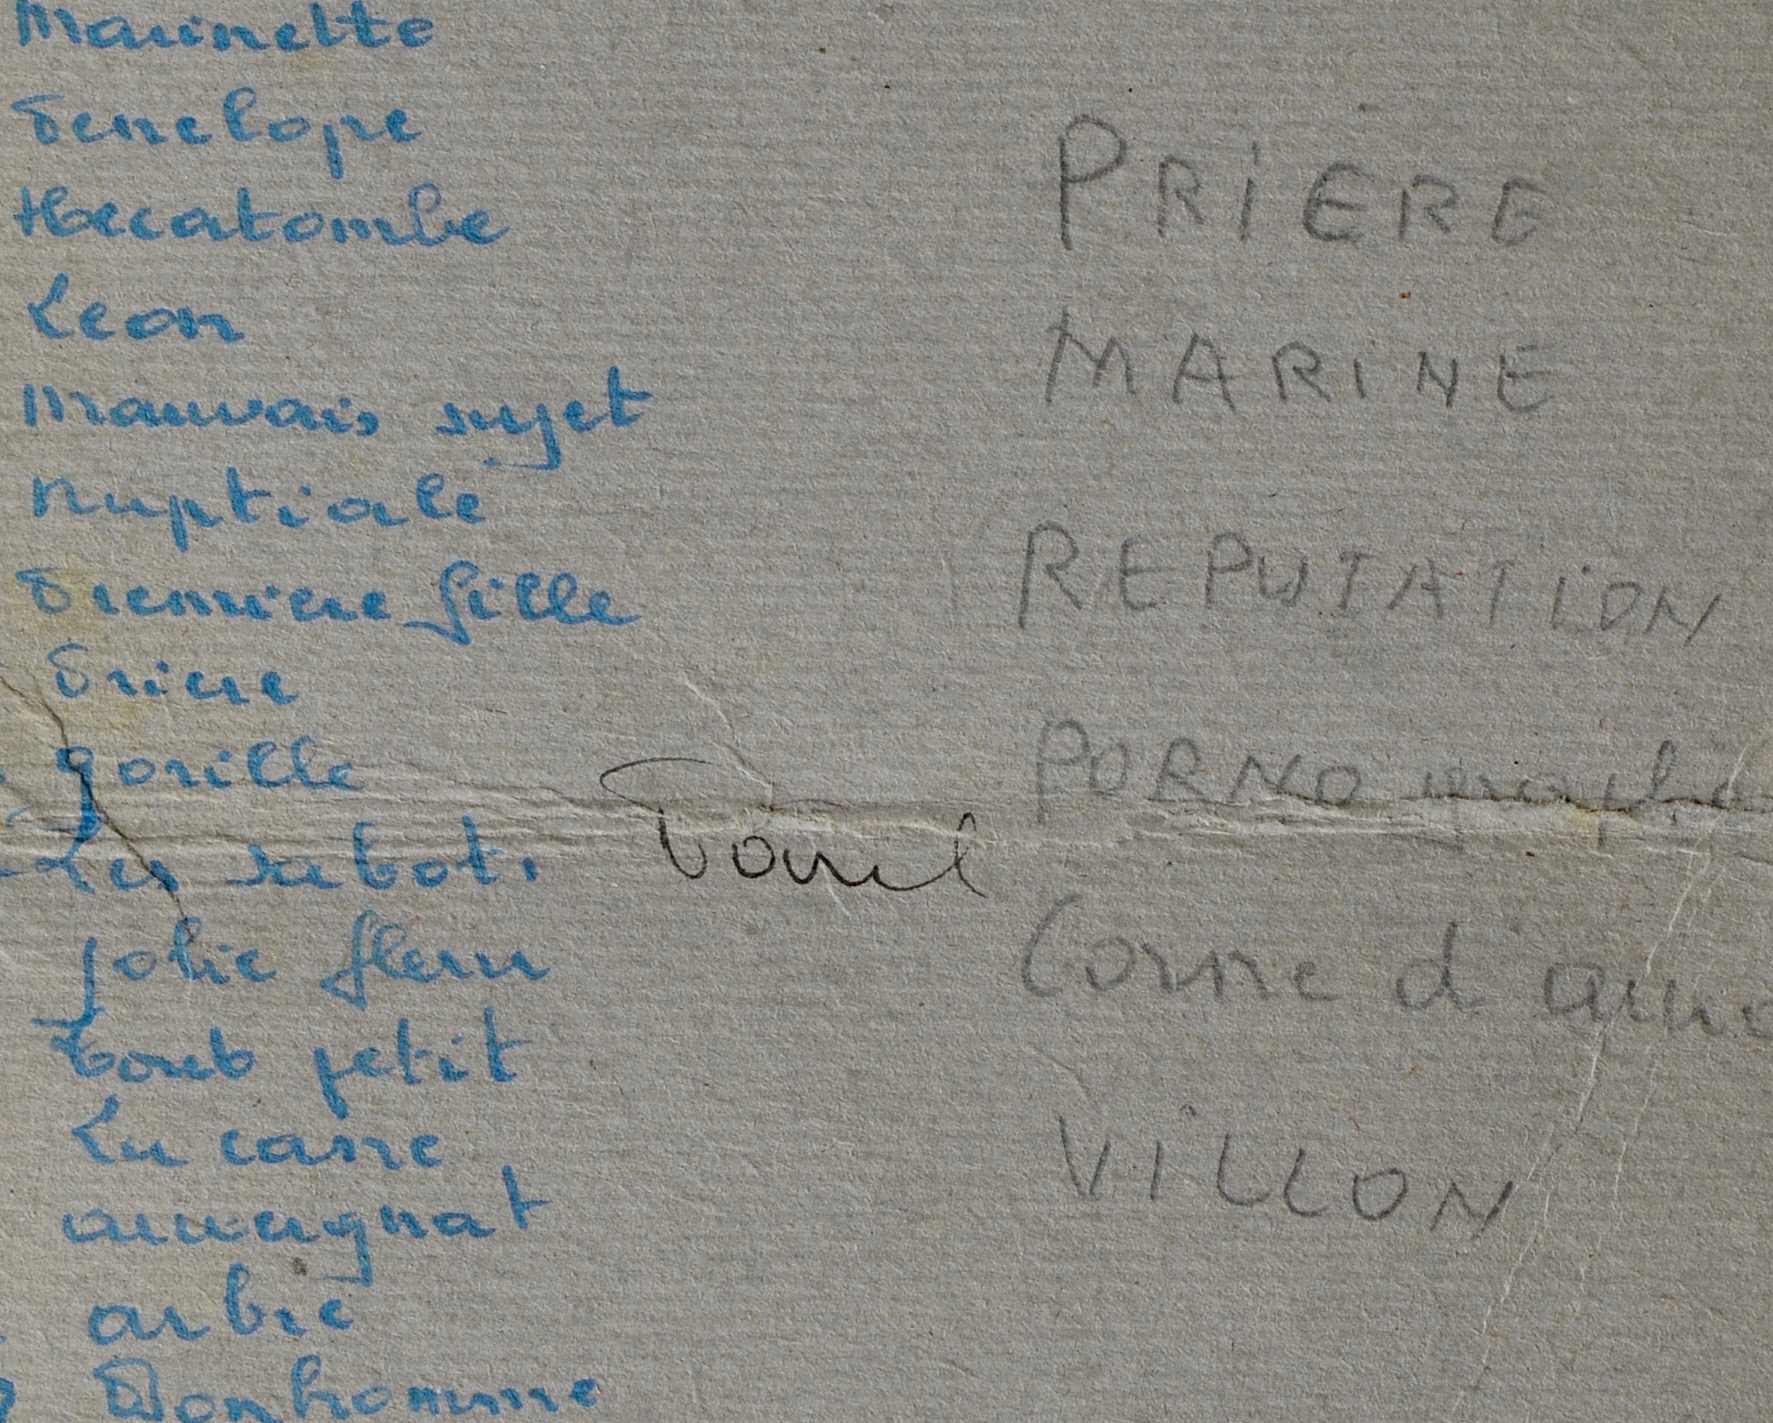 Marinette
Penelope
Hecatombe
Leon
Mauvais sujet
Nuptiale
Premiere fille
Priere
gorille
Les sabots
jolie fleur
petit
La cane
auvergnat
arbre
Bonhomme
PRIERE
MARINE
REPUTATION
PORNographe
Corne d'auro
VILLON